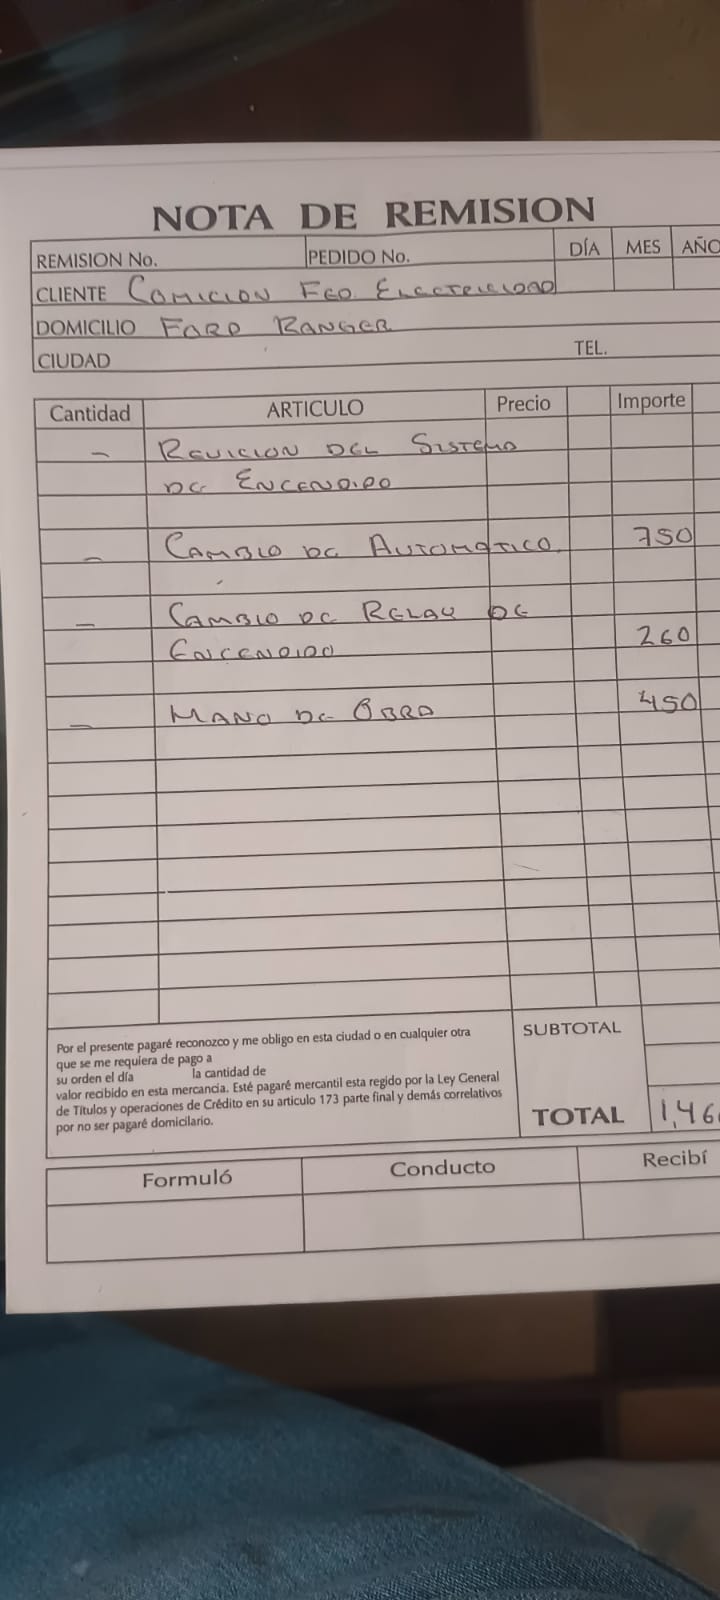 NOTA DE REMISION
REMISION No. PEDIDO No. DÍA MES AÑO
CLIENTE COMICION FEO. ELECTRICIDAD
DOMICILIO FORD RANGER
CIUDAD TEL.
Cantidad ARTICULO Precio Importe
– REVICION DEL SISTEMA
DE ENCENDIDO
– CAMBIO DE AUTOMATICO 750
– CAMBIO DE RELAY DE
ENCENDIDO 260
– MANO DE OBRA 450
Por el presente pagaré reconozco y me obligo en esta ciudad o en cualquier otra
que se me requiera de pago a
su orden el día la cantidad de
valor recibido en esta mercancia. Esté pagaré mercantil esta regido por la Ley General
de Títulos y operaciones de Crédito en su articulo 173 parte final y demás correlativos
por no ser pagaré domicilario.
SUBTOTAL
TOTAL 1,46
Formuló Conducto Recibí